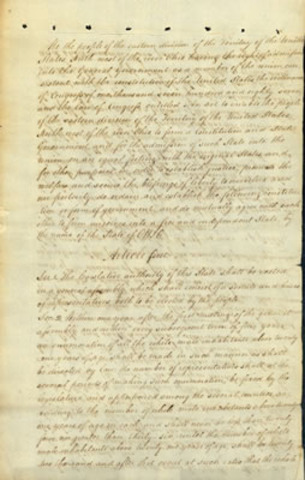 We the people of the eastern division of the Territory of the United
States North west of the river Ohio having the right of admission
into the General Government as a member of the union, con
sistent with the constitution of the United States, the ordinance
of Congress of one thousand seven hundred and eighty seven
and the law of Congress entitled An act to enable the People
of the eastern division of the Territory of the United States
North west of the river Ohio to form a Constitution and State
Government and for the admission of such State into the
union on an equal footing with the original States and
for other purposes in order to establish justice, promote the
welfare and secure the blessings of liberty to ourselves and
our posterity do ordain and establish the following constitu
tion or form of government and do mutually agree with each
other to form ourselves into a free and independent State by
the name of the State of Ohio
Article first
Sec 1 The legislative authority of this State shall be vested
in a general assembly which shall consist of a senate and house
of representatives both to be elected by the people
Sec 2 Within one year after the first meeting of the general
assembly and within every subsequent term of four years
an enumeration of all the white male inhabitants above twenty
one years of age shall be made in such manner as shall
be directed by law the number of representatives shall at the
several periods of making such enumeration be fixed by the
legislature and apportioned among the several counties ac
cording to the number of white male inhabitants above twenty
one years of age in each and shall never be less than twenty
four nor greater than thirty six until the number of white
male inhabitants above twenty one years of age shall be twenty
two thousand and after that event at such ratio that the whole